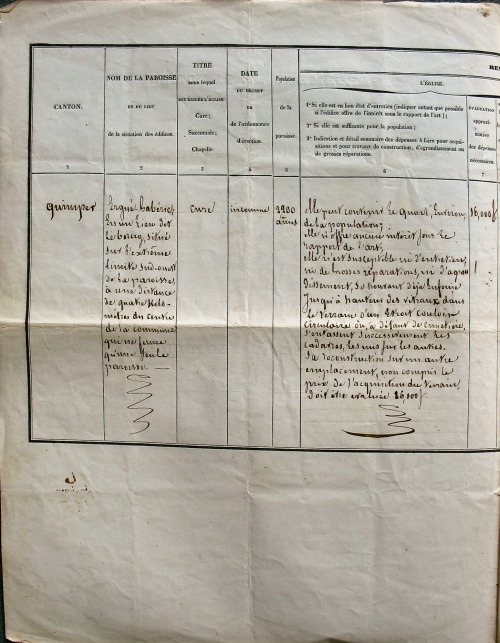 REN
CANTON.
1
NOM DE LA PAROISSE
OU DU LIEU
de la situation des édifices.
2
TITRE
sous lequel
EST ÉRIGÉE L'ÉGLISE:
Cure;
Succursale;
Chapelle.
3
DATE
DU DÉCRET
ou
de l'ordonnance
d'érection.
4
Population
de la
paroisse.
5
L'ÉGLISE.
1° Si elle est en bon état d'entretien (indiquer autant que possible
si l'édifice offre de l'intérêt sous le rapport de l'art);
2° Si elle est suffisante pour la population;
3° Indication et détail sommaire des dépenses à faire pour acqui-
sitions et pour travaux de construction, d'agrandissement ou
de grosses réparations.
6
ÉVALUATION
approxi-
mative
des dépenses
nécessaires.
7
quimper
Ergué Gabéric,
en un lieu dit
Le bourg, situé
sur l'extrême
limite sud-ouest
de la paroisse,
à une distance
de quatre kilo-
mètres du centre
de la commune
qui ne forme
qu'une seule
paroisse. —
cure
inconnue
2200
âmes
elle peut contenir le quart, environ
de la population;
elle n'offre aucun intérêt sous le
rapport de l'art,
elle n'est susceptible ni d'entretien,
ni de grosses réparations, ni d'agran
dissement, se trouvant déjà enfouie
jusqu'à hauteur des vitraux dans
le terrain d'un étroit couloir
circulaire où, à défaut de cimetière,
s'entassent successivement les
cadavres, les uns sur les autres.
Sa reconstruction sur un autre
emplacement, non compris le
prix de l'acquisition du terrain,
doit être évaluée 16,000f
16,000f